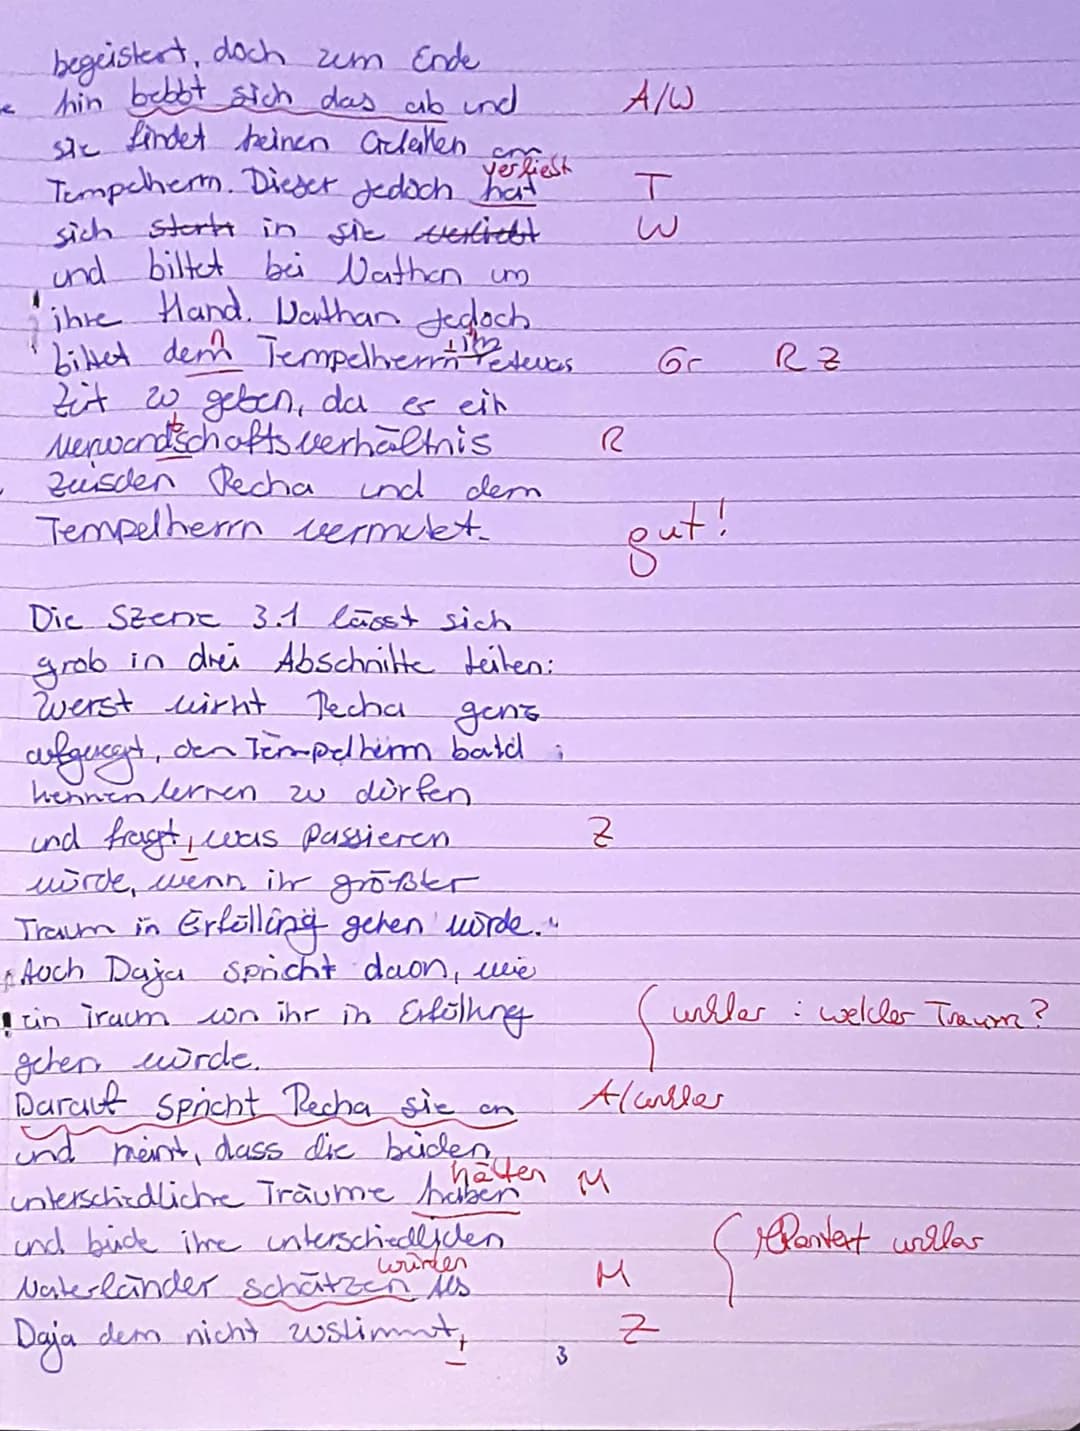 begeistert, doch zum Ende
hin bebbt sich das ab und A/W
sie findet keinen Gefallen am
verliebt
Tempelherrn. Dieser jedoch hat T
sich stark in sie verliebt W
und bittet bei Nathan um
ihre Hand. Nathan jedoch
ihm
bittet dem Tempelherrn etwas Gr R Z
Zeit zu geben, da er ein
Verwandschaftsverhältnis R
zwischen Recha und dem
Tempelherrn vermutet. gut!
Die Szene 3.1 lässt sich
grob in drei Abschnitte teilen:
Zuerst wirkt Recha ganz
aufgeregt, den Tempelherrn bald
kennenlernen zu dürfen
und fragt, was passieren Z
würde, wenn ihr größter
Traum in Erfüllung gehen würde.
Auch Daja spricht davon, wie
ein Traum von ihr in Erfüllung unklar: welcher Traum?
gehen würde.
Darauf spricht Recha sie an A/unklar
und meint, dass die beiden
hätten
unterschiedliche Träume haben M
und beide ihre unterschiedlichen inhaltlich unklar
würden
Vaterländer schätzen Als M
Daja dem nicht zustimmt, Z
3